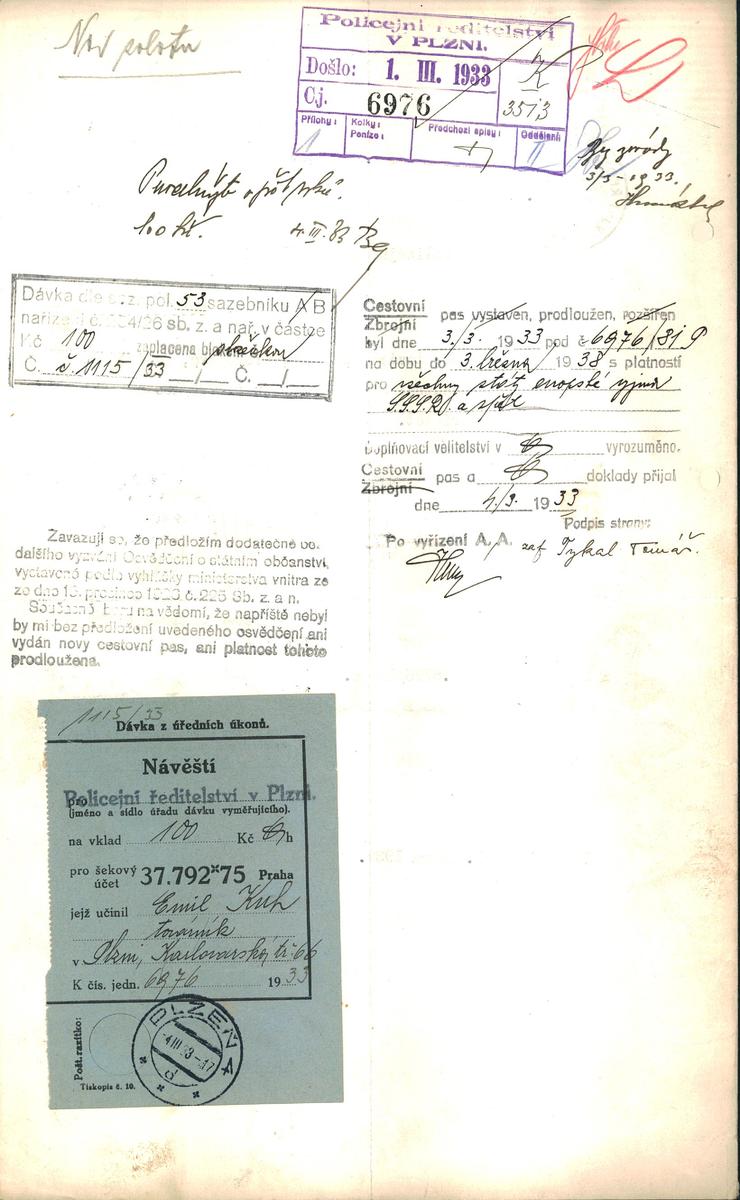 Policejní ředitelství
V PLZNI.
Došlo: 1. III. 1933
Čj. 6976
K
3513
Přílohy: 1
Kolky:
Peníze:
Předchozí spisy:
Oddělení: II
3/3-1933.
100 Kč. 4.III.33
Dávka dle saz. pol. 53 sazebníku A B
nařízení č. 254/26 sb. z. a nař. v částce
Kč 100 zaplacena
Č. č. 1115/33 __/__ Č. __/__
Cestovní
Zbrojní pas vystaven, prodloužen, rozšířen
byl dne 3./3. 1933 pod č. 6976/31
na dobu do 3. března 1938 s platností
pro všechny státy evropské vyjma
S.S.S.R. a zpět
Doplňovací velitelství v vyrozuměno.
Cestovní
Zbrojní pas a doklady přijal
dne 4/3. 1933
Podpis strany:
Po vyřízení A. A. Tykal Tomáš.
Zavazuji se, že předložím dodatečně do
dalšího vyzvání Osvědčení o státním občanství,
vystavené podle vyhlášky ministerstva vnitra ze
ze dne 16. prosince 1926 č. 225 Sb. z. a n.
Současně beru na vědomí, že napříště nebyl
by mi bez předložení uvedeného osvědčení ani
vydán nový cestovní pas, ani platnost tohoto
prodloužena.
1115/33
Dávka z úředních úkonů.
Návěští
pro Policejní ředitelství v Plzni.
(jméno a sídlo úřadu dávku vyměřujícího).
na vklad 100 Kč h
pro šekový
účet 37.792*75 Praha
jejž učinil Emil Kuh
továrník
v Plzni, Karlovarská tř. 66
K čís. jedn. 6976 1933
Pošt. razítko:
PLZEŇ 4
-4.III.33-17
d
Tiskopis č. 10.